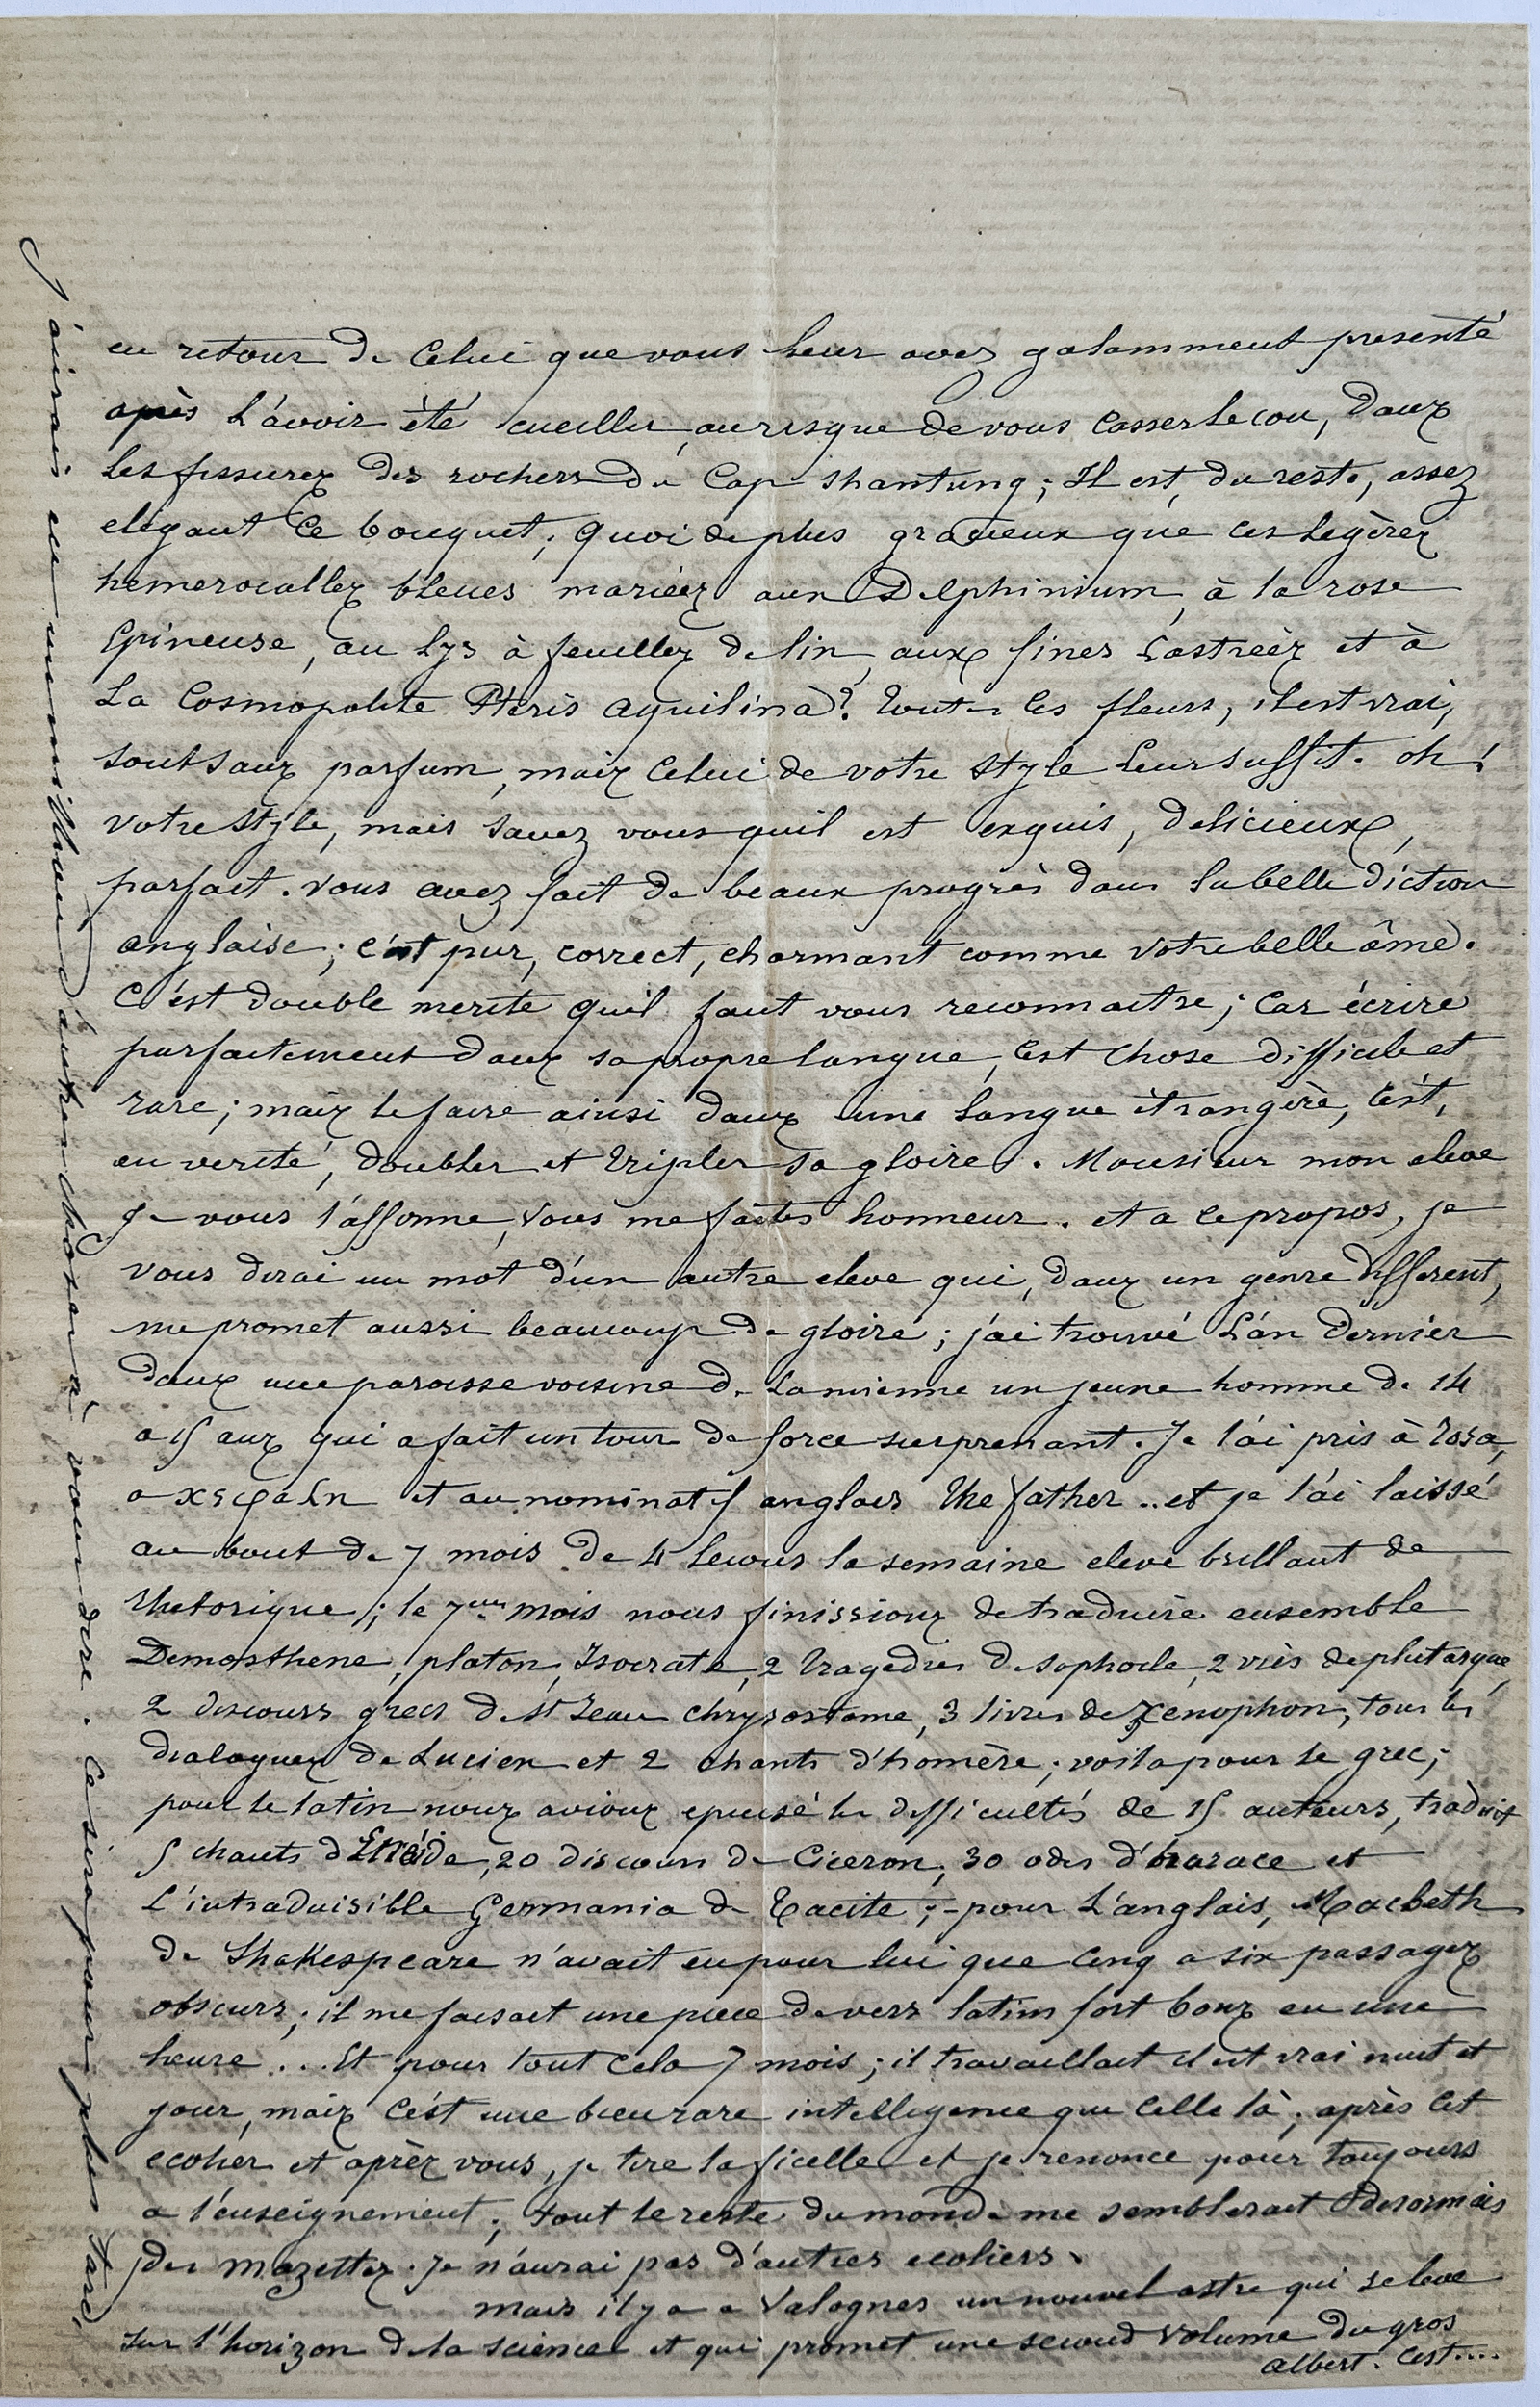 en retour de celui que vous leur avez galamment presenté
après l'avoir été cueillir, au risque de vous casser le cou, dans
les fissures des rochers du Cap Shantung; Il est, du reste, assez
elegant ce bouquet; quoi de plus gracieux que ces legères
hemerocalles bleues mariées aux Delphinium, à la rose
Epineuse, au lys à feuilles de lin, aux fines Lastrées et à
la Cosmopolite Pteris aquilina? toutes ces fleurs, il est vrai,
sont sans parfum, mais celui de votre style leur suffit. oh!
votre style, mais savez vous quil est exquis, delicieux,
parfait. vous avez fait de beaux progrès dans la belle diction
anglaise; c'est pur, correct, charmant comme votre belle âme.
C'est double merite quil faut vous reconnaitre; car écrire
parfaitement dans sa propre langue, c'est chose difficile et
rare; mais le faire ainsi dans une langue étrangère, c'est,
en verité, doubler et tripler sa gloire. Monsieur mon eleve
je vous l'affirme, vous me faites honneur. et a ce propos, je
vous dirai un mot d'un autre eleve qui, dans un genre different,
me promet aussi beaucoup de gloire; j'ai trouvé l'an dernier
dans une paroisse voisine de la mienne un jeune homme de 14
a 15 ans qui a fait un tour de force surprenant. Je l'ai pris à rosa,
a et au nominatif anglais the father .. et je l'ai laissé
au bout de 7 mois de 4 lecons la semaine eleve brillant de
rhetorique; le 7eme mois nous finissions de traduire ensemble
Demosthene, platon, Isocrate, 2 tragedies de sophocle, 2 vies de plutarque,
2 discours grecs de St Jean chrysostome, 3 livres de Xenophon, tous les
dialogues de Lucien et 2 chants d'homère; voila pour le grec;
pour le latin nous avions epuisé les difficultés de 15 auteurs, traduit
5 chants d'Enéide, 20 discours de Ciceron, 30 odes d'horace et
l'intraduisible Germania de Tacite; - pour l'anglais, Macbeth
de Shakespeare n'avait eu pour lui que cinq a six passages
obscurs; il me faisait une piece de vers latins fort bons en une
heure ... Et pour tout cela 7 mois; il travaillait il est vrai nuit et
jour, mais c'est une bien rare intelligence que celle là; après cet
ecolier et après vous, je tire la ficelle et je renonce pour toujours
a l'enseignement; tout le reste du monde me semblerait desormais
des mazettes. Je n'aurai pas d'autres ecoliers.
mais il y a a Valognes un nouvel astre qui se leve
sur l'horizon de la science et qui promet une second volume du gros
albert. C'est....
J'aurais eu un million d'autres choses à vous dire. Ce sera pour plus tard.